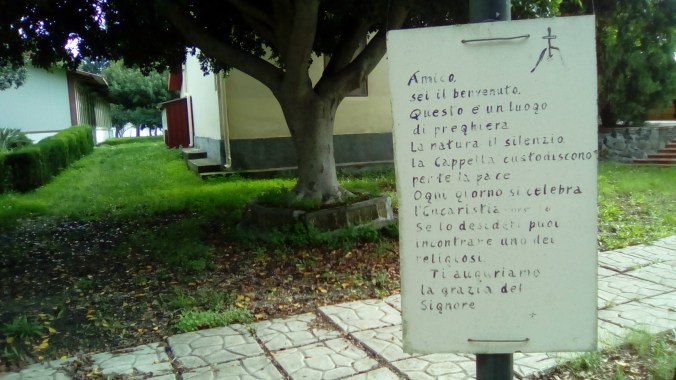 Amico,
sei il benvenuto.
Questo è un luogo
di preghiera
La natura il silenzio
la Cappella custodiscono
per te la pace
Ogni giorno si celebra
l'Eucaristia
Se lo desideri puoi
incontrare uno dei
religiosi
Ti auguriamo
la grazia del
Signore